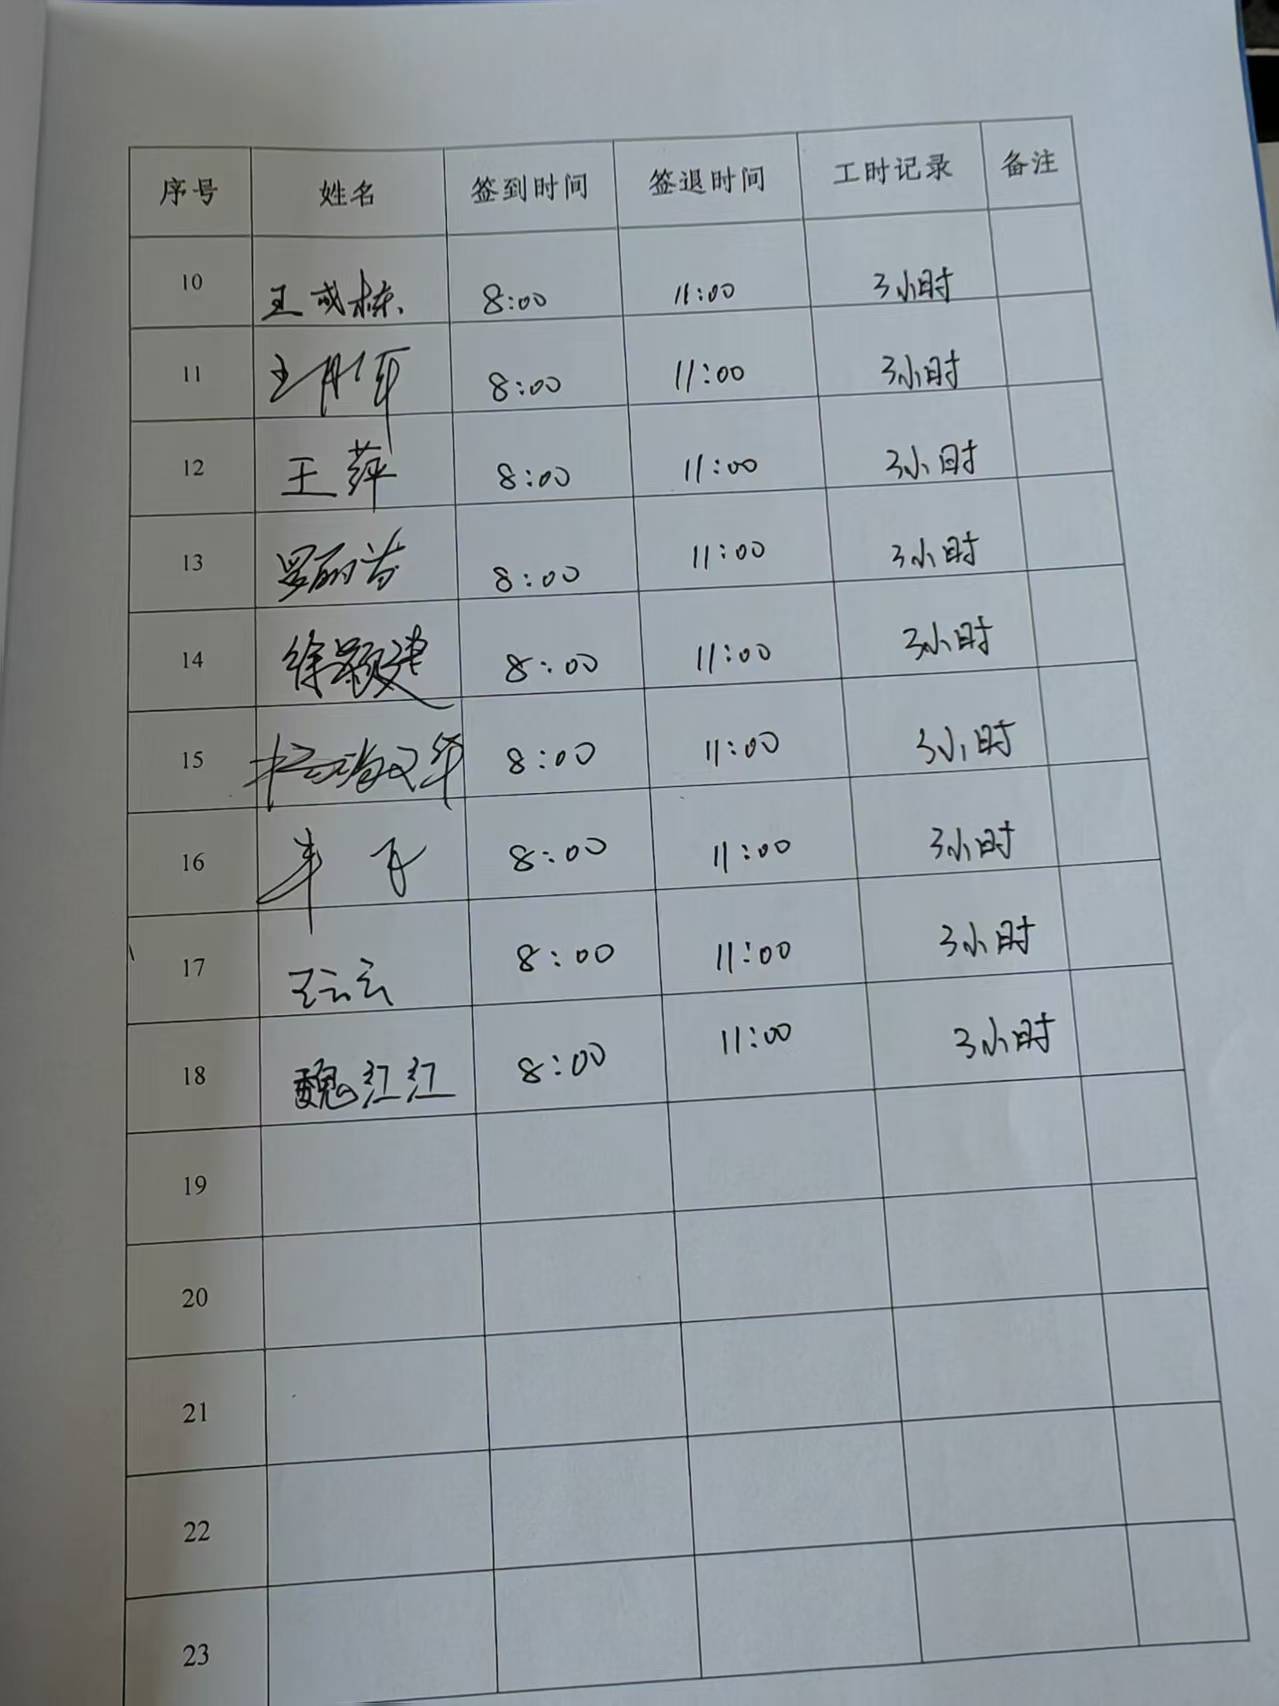 序号 姓名 签到时间 签退时间 工时记录 备注
10 王成栋 8:00 11:00 3小时
11 8:00 11:00 3小时
12 王萍 8:00 11:00 3小时
13 8:00 11:00 3小时
14 徐颖建 8:00 11:00 3小时
15 8:00 11:00 3小时
16 8:00 11:00 3小时
17 王云云 8:00 11:00 3小时
18 魏红红 8:00 11:00 3小时
19
20
21
22
23